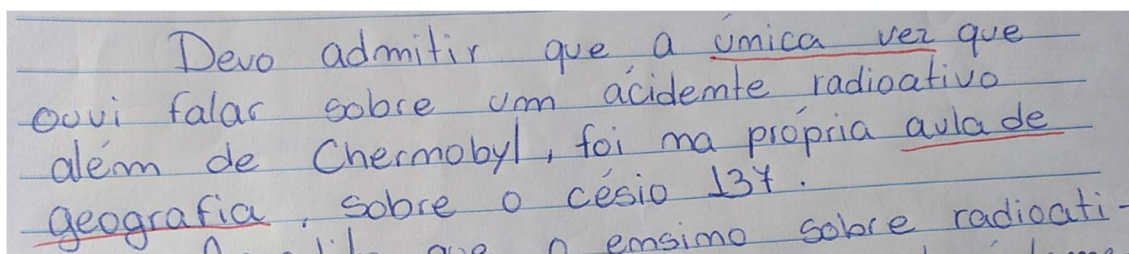 Devo admitir que a única vez que
ouvi falar sobre um acidente radioativo
além de Chernobyl, foi na própria aula de
geografia, sobre o césio 137.
que o ensino sobre radioati-